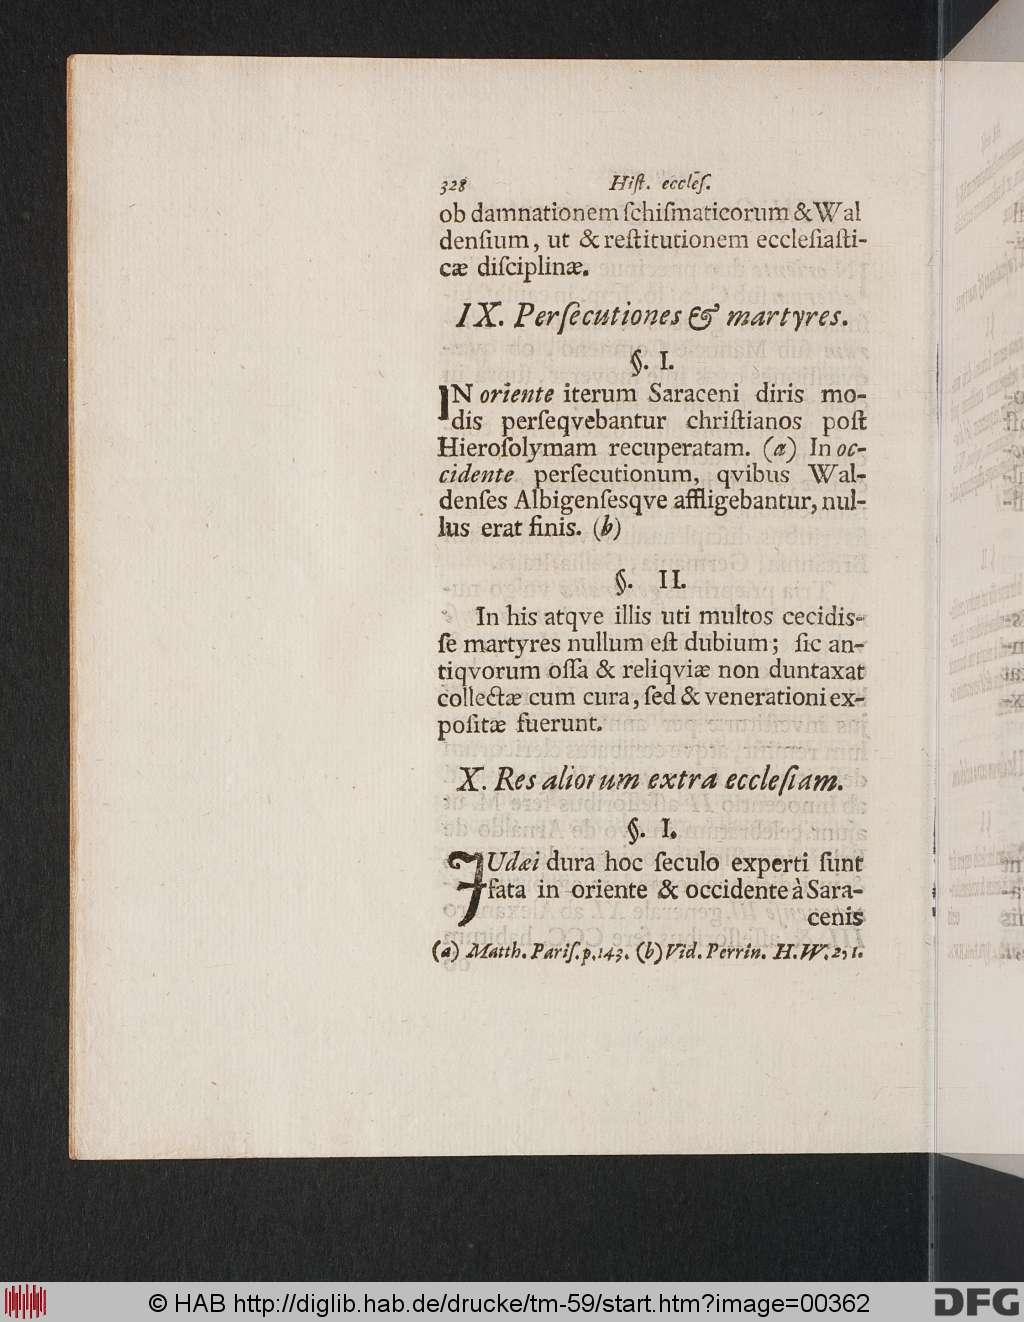 328 Hiſt. eccleſ.
ob damnationem ſchiſmaticorum & Wal
denſium, ut & reſtitutionem eccleſiaſti-
cæ diſciplinæ.
IX. Perſecutiones & martyres.
§. I.
IN oriente iterum Saraceni diris mo-
dis perſeqvebantur chriſtianos poſt
Hieroſolymam recuperatam. (a) In oc-
cidente perſecutionum, qvibus Wal-
denſes Albigenſesqve affligebantur, nul-
lus erat finis. (b)
§. II.
In his atqve illis uti multos cecidis-
ſe martyres nullum eſt dubium; ſic an-
tiqvorum oſſa & reliqviæ non duntaxat
collectæ cum cura, ſed & venerationi ex-
poſitæ fuerunt.
X. Res aliorum extra eccleſiam.
§. I.
JUdæi dura hoc ſeculo experti ſunt
fata in oriente & occidente à Sara-
cenis
(a) Matth. Pariſ. p. 143. (b) Vid. Perrin. H. W. 2, 1.
© HAB http://diglib.hab.de/drucke/tm-59/start.htm?image=00362
DFG